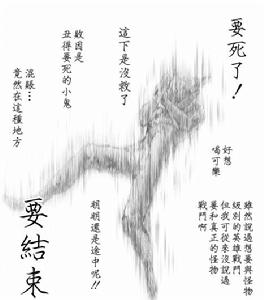 要死了！
這下是沒救了
敵因是
丑得要死的小鬼
混賬…
竟然在這種地方
好想
喝可樂
雖然說過想要與怪物
級別的英雄戰鬥
但我可從來沒說過
要和真正的怪物
戰鬥啊
朝朝還是途中呢!!
要結束